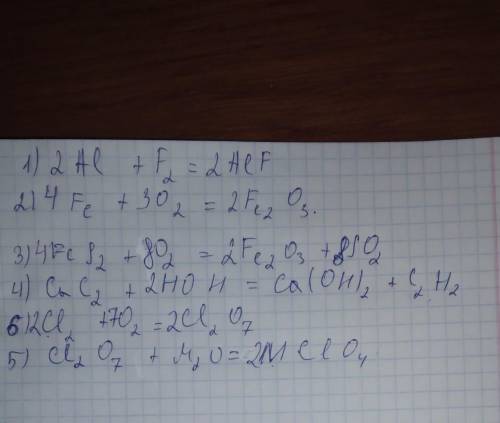 1) 2Al + F₂ = 2AlF
2) 4Fe + 3O₂ = 2Fe₂O₃.
3) 4FeS₂ + 8O₂ = 2Fe₂O₃ + 8SO₂
4) CaC₂ + 2HOH = Ca(OH)₂ + C₂H₂
6) 2Cl₂ + 7O₂ = 2Cl₂O₇
5) Cl₂O₇ + H₂O = 2HClO₄